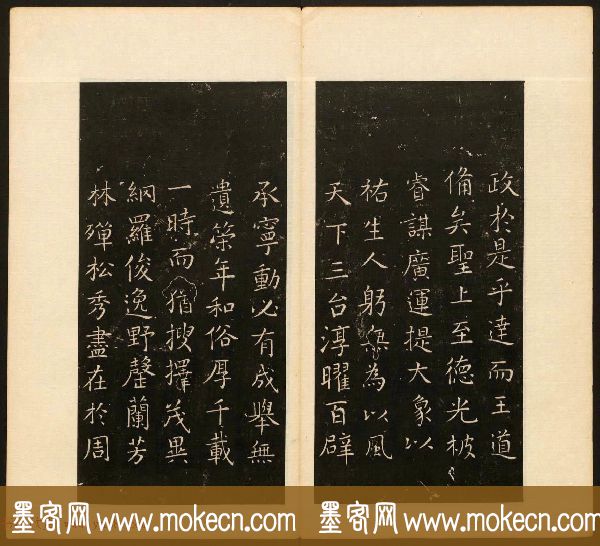 政於是乎達而王道
備矣聖上至德光被
睿謀廣運提大象以
祐生人躬無為以風
天下三台淳曜百辟
承寧動必有成舉無
遺策年和俗厚千載
一時而猶搜擇茂異
網羅俊逸野罄蘭芳
林殫松秀盡在於周
墨客网 www.mokecn.com 墨客网 www.mokecn.com